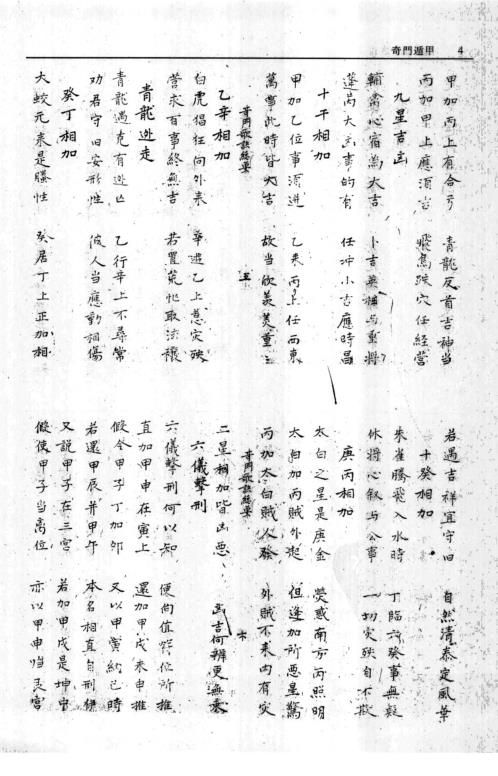 奇門遁甲 4
甲加丙上有合号 青龍反首吉神当
丙加甲上應須吉 飛鳥跌穴任經营
九星吉凶
輔禽心宿為大吉 卜吉英柱与
蓬芮大凶事的有 任冲小吉應時昌
十干相加
甲加乙位事源进 乙来丙上任西東
萬事此時皆大吉 故当欣羡美重重
奇門歌訣總要 五
乙辛相加
白虎猖狂向外来 辛遊乙上惹灾殃
营求百事終無吉 若置荒地取法禳
青龍逃走
青龍遇克有逃亡 乙行辛上不尋常
劝君守旧安形性 彼人当應動詞傷
癸丁相加
大蛟元来是騰性 癸居丁上正加相
若遇吉祥宜守旧 自然清泰定風華
十癸相加
朱雀騰飛入水時 丁臨六癸事無疑
休將心叙与公事 一切灾殃自不欺
庚丙相加
太白之星是庚金 熒惑南方丙照明
太白加丙賊外起 但逢加所惡星驚
丙加太白賊人發 外賊不来内有灾
奇門歌訣總要 六
二星相加皆凶惡 凶吉何辨更無来
六儀擊刑
六儀擊刑何以知 便向值符位所推
直加甲申在寅上 還加甲戌未申推
假令甲子丁加卯 又以甲寅納巳時
若還甲辰并甲午 本名相直自刑
又說甲子在三宮 若加甲戌是坤中
假使甲子当高位 亦以甲申当良宮